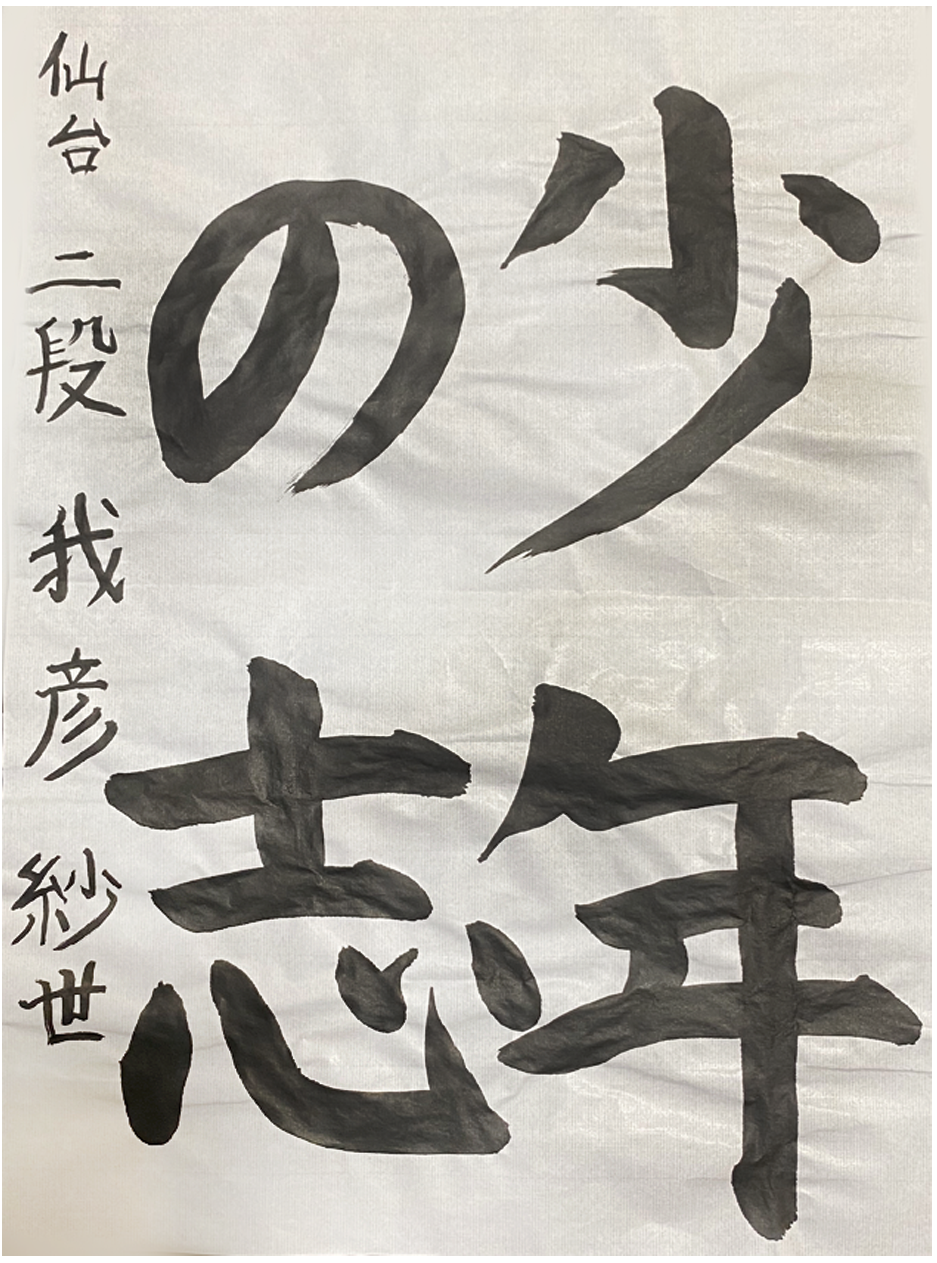 少年
の志
仙台 二段 我彦 紗世